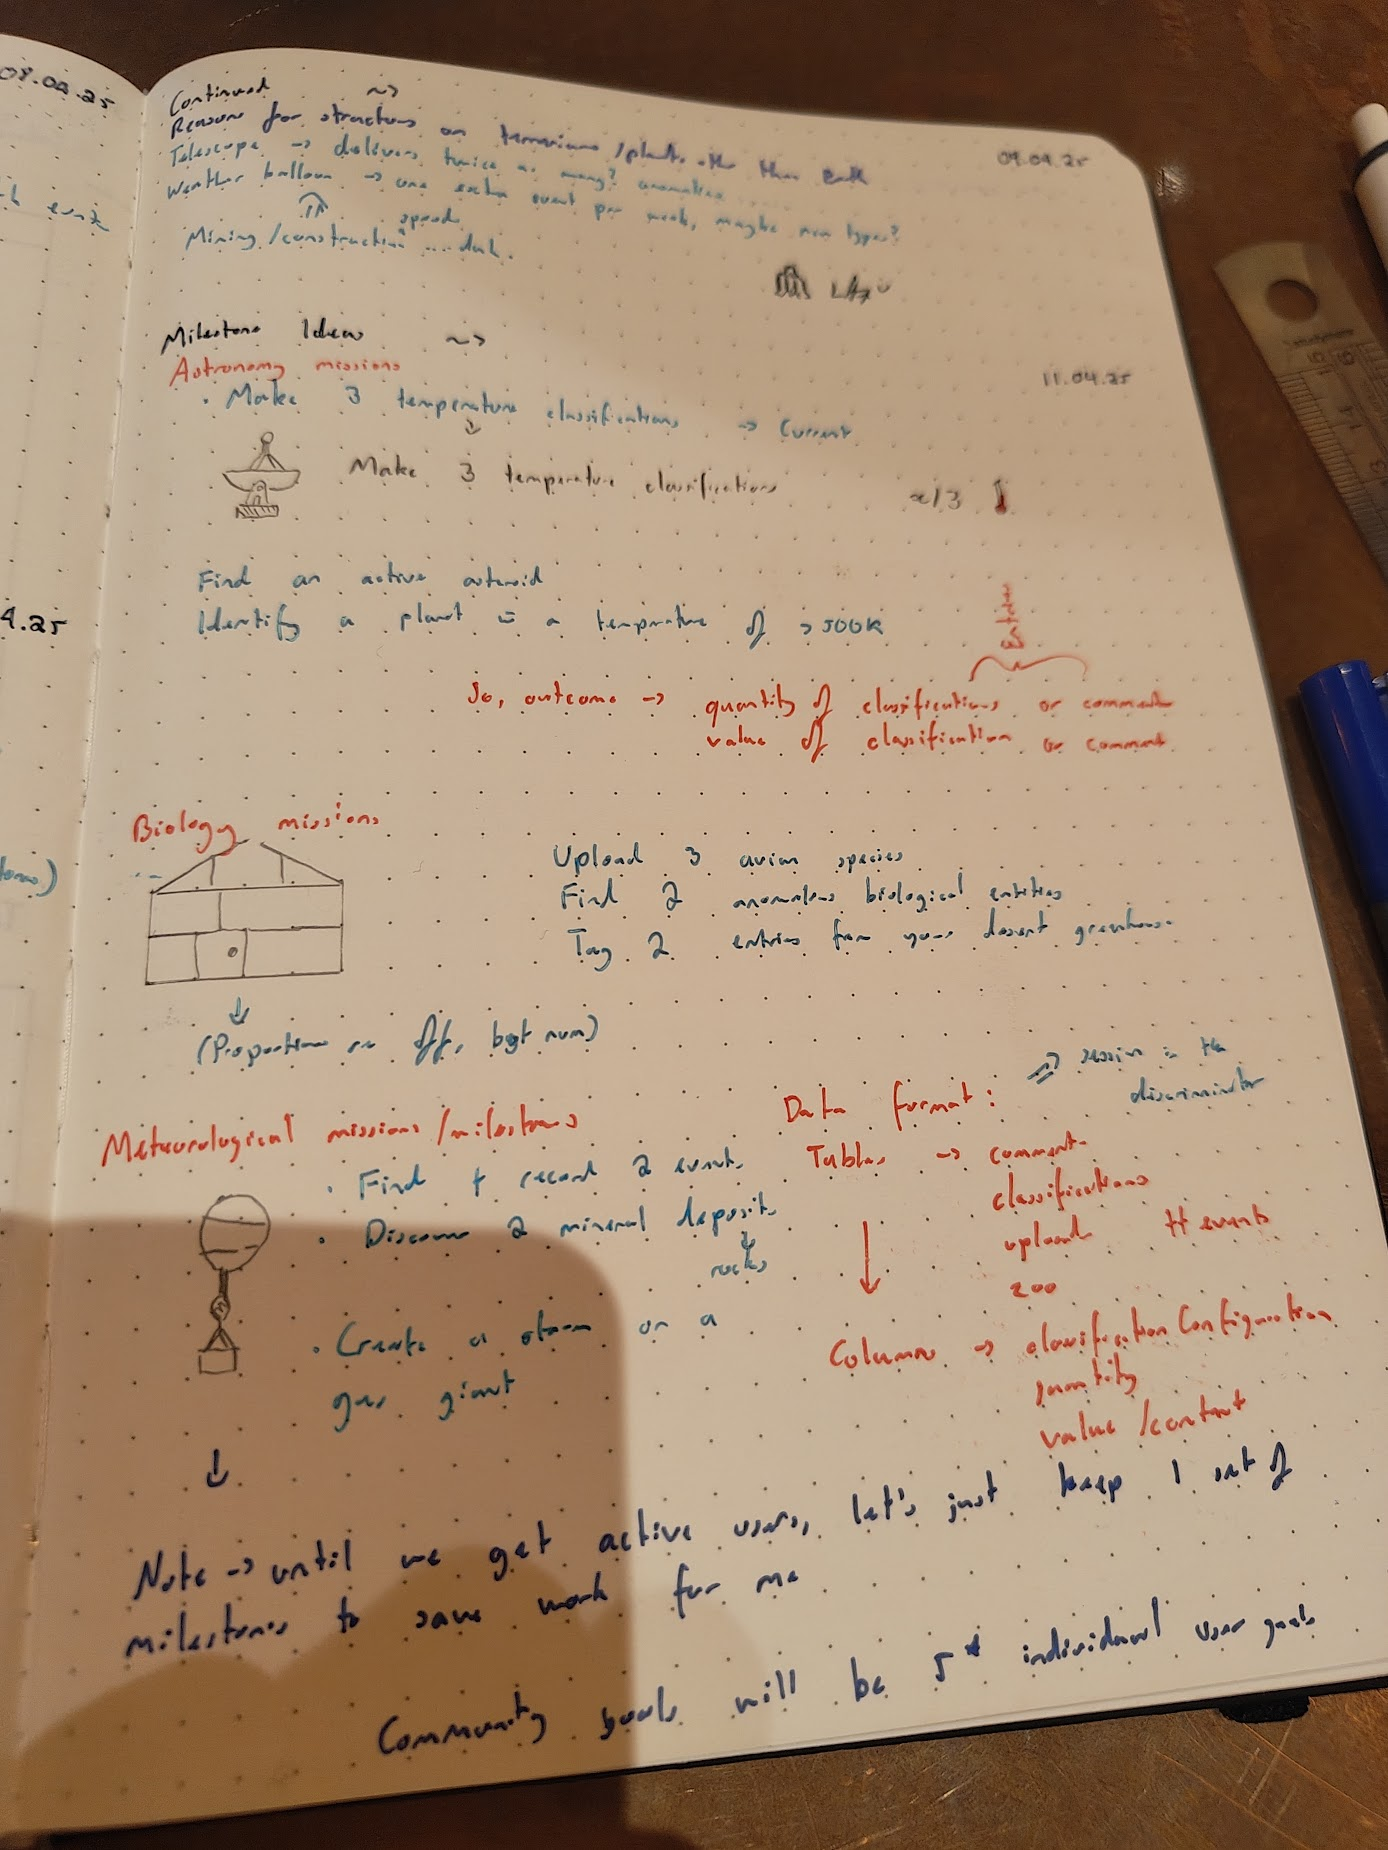 08.04.25
Continued ~>
Reasons for structures on terrariums/planets other than Earth
09.04.25
Telescope -> delivers twice as many? anomalies
Weather balloon -> one extra event per week, maybe new types?
Mining/construction speed
Milestone Ideas ~>
Astronomy missions
11.04.25
• Make 3 temperature classifications -> Current
Make 3 temperature classifications
x/3
Find an active asteroid
Identify a planet = a temperature of >500K
So, outcome -> quantity of classifications or comments
value of classification or comment
Biology missions
Upload 3 avian species
Find 2 anomalous biological entities
Tag 2 entries from your desert greenhouse
(Proportions are off, bggt num)
Meteorological missions/milestones
• Find + record 2 events
• Discover 2 mineral deposits
rocks
• Create a storm on a
gas giant
Data format:
=> session is the
discriminator
Tables -> comments
classifications
uploads
events
zoo
Columns -> classificationConfiguration
quantity
value/content
Note -> until we get active users, let's just keep 1 set of
milestones to save work for me
Community goals will be 5* individual user goals
4.25